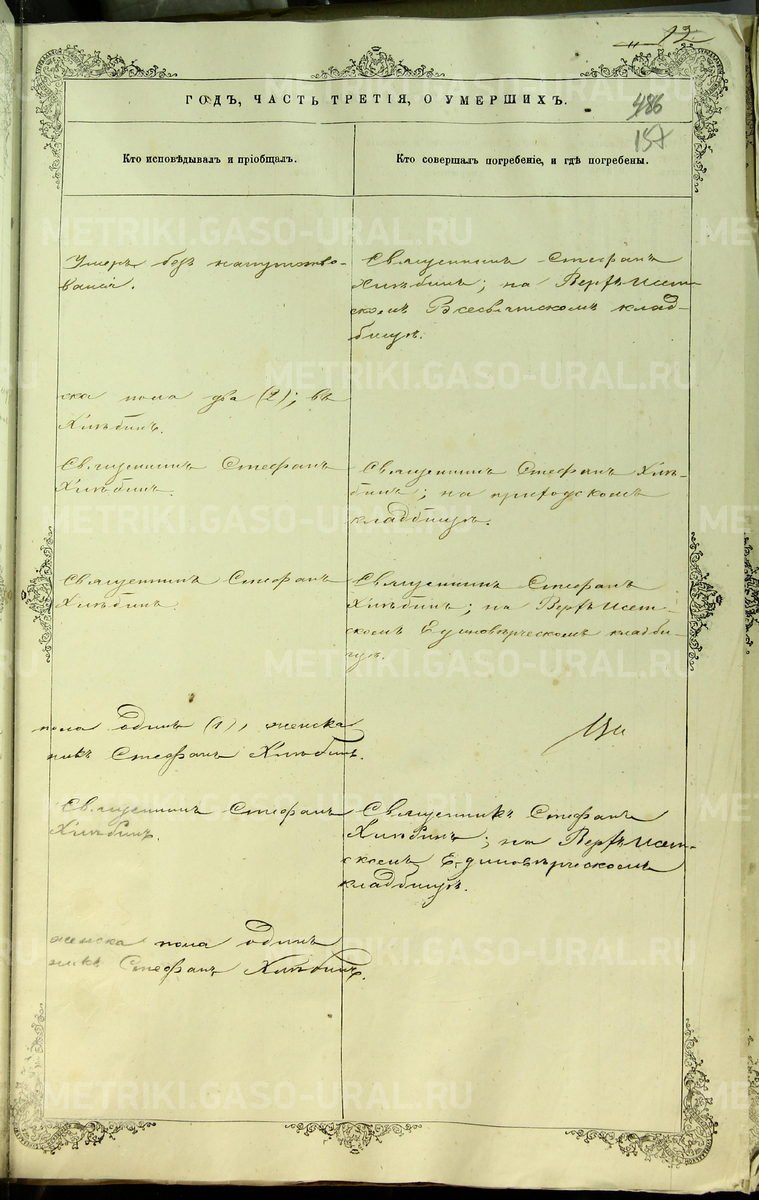 12
486
157
ГОДЪ, ЧАСТЬ ТРЕТІЯ, О УМЕРШИХЪ.
Кто исповѣдывалъ и пріобщалъ.
Кто совершалъ погребеніе, и гдѣ погребены.
Умеръ безъ напутство-
ванія.
Священникъ Стефанъ
Хлѣбинъ; на Верхъ Исет-
скомъ Всесвятскомъ клад-
бищѣ.
ска пола два (2); въ
Хлѣбинъ.
Священникъ Стефанъ
Хлѣбинъ.
Священникъ Стефанъ Хлѣ-
бинъ; на приходскомъ
кладбищѣ.
Священникъ Стефанъ
Хлѣбинъ.
Священникъ Стефанъ
Хлѣбинъ; на Верхъ Исет-
скомъ Единовѣрческомъ кладби-
щѣ.
пола одинъ (1), женска
никъ Стефанъ Хлѣбинъ.
Священникъ Стефанъ
Хлѣбинъ.
Священникъ Стефанъ
Хлѣбинъ; на Верхъ Исет-
скомъ Единовѣрческомъ
кладбищѣ.
женска пола одинъ
никъ Стефанъ Хлѣбинъ.
METRIKI.GASO-URAL.RU